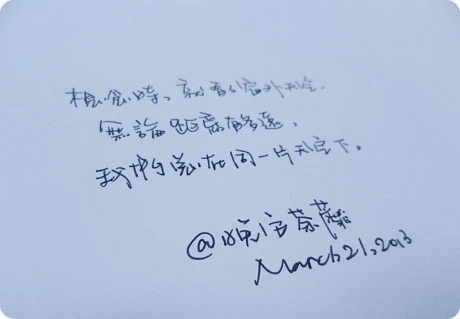 想念時、就看看窗外天空.
無論距離有多遠.
我們總在同一片天空下。
@晚安茶
March 21, 2013